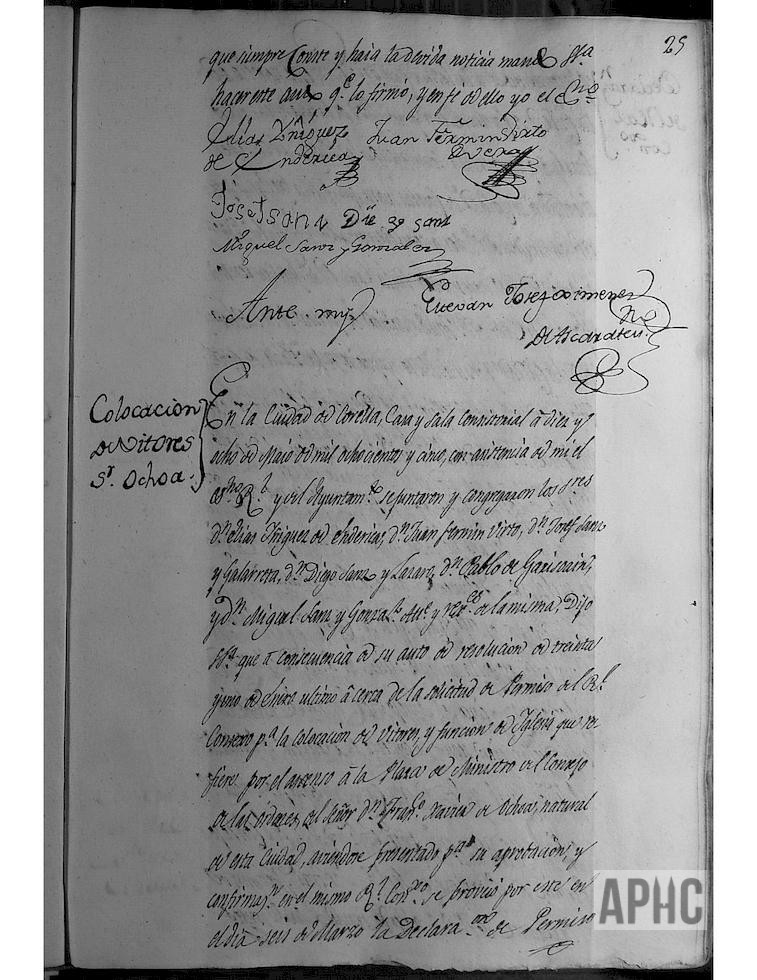 25
que siempre Conste y haia la devida noticia mandó Sª
hacer este auto q.e lo firmó, y en fe de ello yo el Esno
Elias Yñiguez Juan Fermin Virto
de Enderica de Vera
Josef Sanz Die go Sanz
Miguel Sanz y Gonzalez
Ante my Estevan Josef Ximenez
no
de Ascarateu
Colocacion
de Vitores
Sr. Ochoa.
En la Ciudad de Corella, Casa y Sala Consistorial á diez y
ocho de Maio de mil ochocientos y cinco, con asistencia de mi el
esno R.l y del Ayuntam.to se juntaron y congregaron los Sres
d.n Elias Yñiguez de Enderica, d.n Juan Fermin Virto, d.n Josef Sanz
y Galarreta, d.n Diego Sanz y Lazaro, d.n Pablo de Garisoain,
y d.n Miguel Sanz y Gonza.z Alc.e y Rex.es de la misma; Dijo
Sª que á consecuencia de su auto de resolucion de treinta
y uno de Enero ultimo á cerca de la solicitud de Permiso del R.l
Consexo p.a la colocacion de Vitores, y funcion de Iglesia que re
fiere por el ascenso á la Plaza de Ministro del Consejo
de las ordenes, del Señor d.n Fran.co Xavier de Ochoa, natural
de esta Ciudad, aviendose presentado p.a su aprobacion, y
confirmaz.n en el mismo R.l Consexo se provió por este en
el dia seis de Marzo la Declara.on de Permiso
APHC